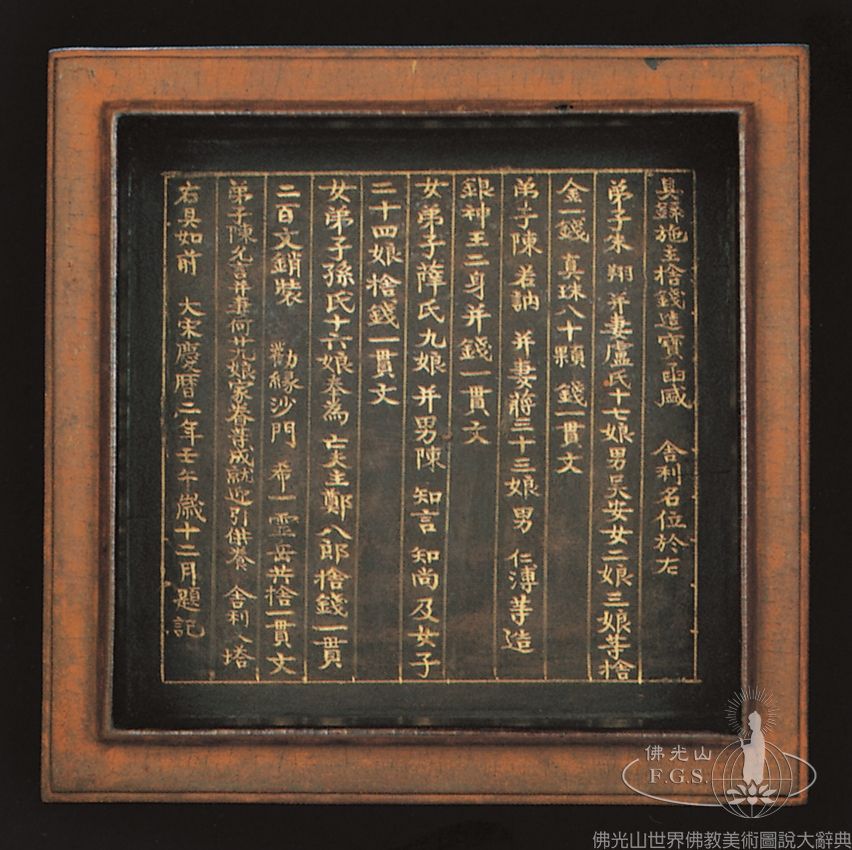 具錄施主捨錢造寶函盛 舍利名位於右
弟子朱 翔 并妻盧氏十七娘男吴安女二娘三娘等捨
金一錢 真珠八十顆 錢一貫文
弟子陳 若訥 并妻蔣三十三娘男 仁溥等造
銀神王二身并錢一貫文
女弟子薛氏九娘并男陳 知言 知尚及女子
二十四娘捨錢一貫文
女弟子孫氏十六娘奉為 亡夫主鄭八郎捨錢一貫
二百文銷裝 勸緣沙門 希一 靈岳共捨一貫文
弟子陳允言并妻何廿九娘家眷等成就迎引供養 舍利入塔
右具如前 大宋慶暦二年壬午歲十二月題記
佛光山
F.G.S.
佛光山世界佛教美術圖說大辭典